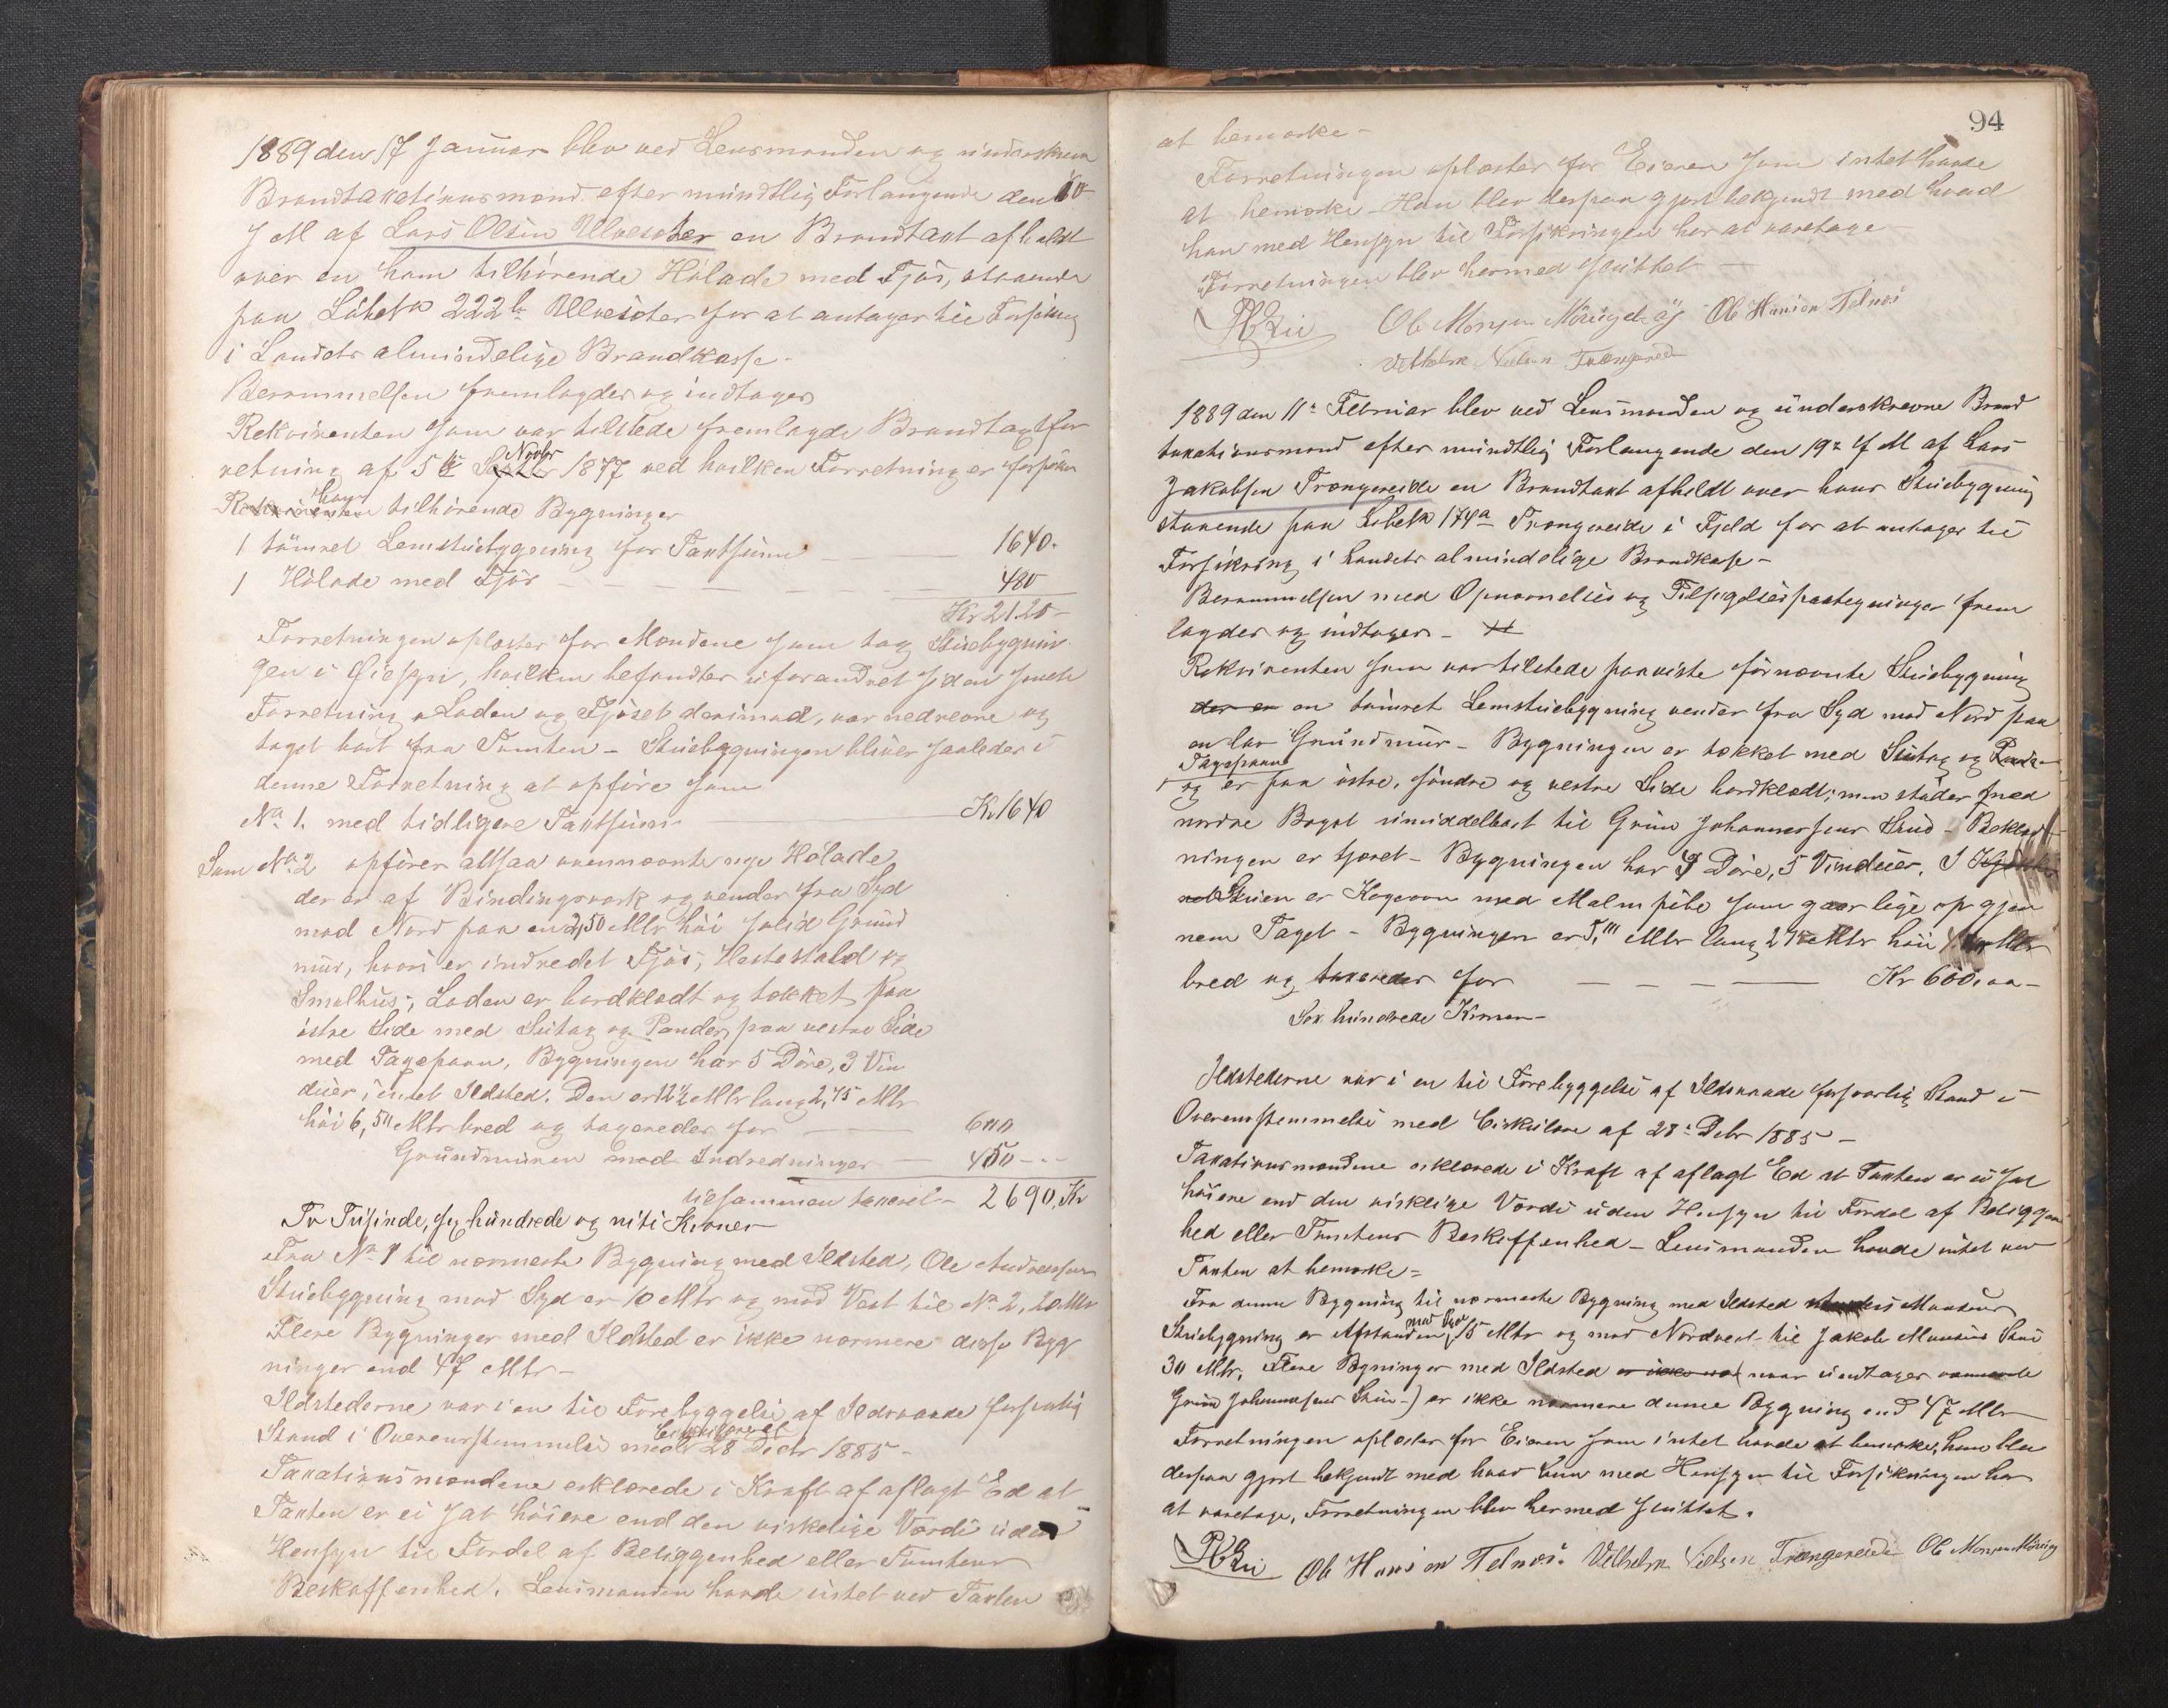 1889 den 17 Januar blev ved Lensmanden og underskrevne
Brandtaxationsmænd efter mundtlig Forlangende den 10
f M af Lars Olsen Ulvesæter en Brandtaxt afholdt
over en ham tilhørende Hølade med Fjøs, staaende
paa Løbe No 222 b Ulvesæter for at antages til Forsikring
i Landets almindelige Brandkasse-
Berammelsen fremlagdes og indtages
Rekvirenten som var tilstede fremlagde Brandtaxtfor
retning af 5te Septbr Novbr 1877 ved hvilken Forretning er forsikret
Rekvirenten ham tilhørende Bygninger
1 tømret Lemstuebygning for Taxtsum — 1640.
1 Hølade med Fjøs — — — — 480
Kr 2120-
Forretningen oplæstes for Mændene som tog Stuebygnin
gen i Øiesyn, hvilken befandtes uforandret siden sidste
Forretning. Laden og Fjøset derimod, var nedrevne og
taget bort fra Tomten - Stuebygningen bliver saaledes i
denne Forretning at opføre som
No 1. med tidligere Taxtsum — Kr 1640
Som No 2 opføres altsaa ovennævnte nye Hølade,
der er af Bindingsværk og vender fra Syd
mod Nord paa en 2,50 Mtr høi solid Grund
mur, hvori er indredet Fjøs, Hestestald og
Smalhus; Laden er bordklædt og tækket paa
østre Side med Sutag og Pander, paa vestre Side
med Tagspaan, Bygningen har 5 Døre, 3 Vin
duer, intet Ildsted. Den er 12½ Mtr lang 2,75 Mtr
høi 6,50 Mtr bred og taxeredes for — 600
Grundmuren med Indredninger — 450 - -
tilsammen taxeret - 2690, Kr
To Tusinde, sex hundrede og niti Kroner
Fra No 1 til nærmeste Bygning med Ildsted, Ole Andreassens
Stuebygning mod Syd er 10 Mtr og mod Vest til No 2, 20 Mtr
Flere Bygninger med Ildsted er ikke nærmere disse Byg
ninger end 47 Mtr -
Ildstederne var i en til Forebyggelse af Ildsvaade forsvarlig
Stand i Overensstemmelse med Cirkulære af 28 Decbr 1885 -
Taxationsmændene erklærede i Kraft af aflagt Ed at
Taxten er ei sat høiere end den virkelige Værdi uden
Hensyn til Fordel af Beliggenhed eller Tomtens
Beskaffenhed. Lensmanden havde intet ved Taxten
94
at bemærke -
Forretningen oplæstes for Eieren som intet havde
at bemærke - Han blev derpaa gjort bekjendt med hvad
han med Hensyn til Forsikringen har at varetage -
Forretningen blev hermed sluttet -
Ole Monsen Ole Hansen Telnæs
Vilhelm Nielsen Trængereide
1889 den 11te Februar blev ved Lensmanden og underskrevne Brand
taxationsmænd efter mundtlig Forlangende den 19de f M af Lars
Jakobsen Trængereide en Brandtaxt afholdt over hans Stuebygning
staaende paa Løbe No 174 a Trængereide i Fjeld for at antages til
Forsikring i Landets almindelige Brandkasse -
Berammelsen med Opnævnelses og Tilsigelsespaategninger frem
lagdes og indtages -
Rekvirenten som var tilstede paaviste førnævnte Stuebygning
der er en tømret Lemstuebygning vender fra Syd mod Nord paa
en lav Grundmur - Bygningen er tækket med Sutag og
Tagspaan
og er paa østre, søndre og vestre Side bordklædt; men støder med
nordre Bagst umiddelbart til Grim Johannessens Stue - Beklæd
ningen er tjæret - Bygningen har 9 Døre, 5 Vinduer. I
Stuen er Kogeovn med Malmpibe som gaar lige op gjen
nem Taget - Bygningen er Mtr lang Mtr høi Mtr
bred og taxeredes for — — — — Kr 600,00 -
Sex hundrede Kroner -
Ildstederne var i en til Forebyggelse af Ildsvaade forsvarlig Stand i
Overensstemmelse med Cirkulære af 28de Debr 1885 -
Taxationsmændene erklærede i Kraft af aflagt Ed at Taxten er ei sat
høiere end den virkelige Værdi uden Hensyn til Fordel af Beliggen
hed eller Tomtens Beskaffenhed - Lensmanden havde intet ved
Taxten at bemærke =
Fra denne Bygning til nærmeste Bygning med Ildsted Monsens
Stuebygning er Afstanden mod Syd 15 Mtr og mod Nordvest til Jakob Monsens Stue
30 Mtr. Flere Bygninger med Ildsted er ikke naar undtages nævnte
Grim Johannessens Stue -) er ikke nærmere denne Bygning end 47 Mtr
Forretningen oplæstes for Eieren som intet havde at bemærke, han blev
derpaa gjort bekjendt med hvad han med Hensyn til Forsikringen har
at varetage, Forretningen blev hermed sluttet.
Ole Hansen Telnæs. Vilhelm Nielsen Trængereide Ole Monsen